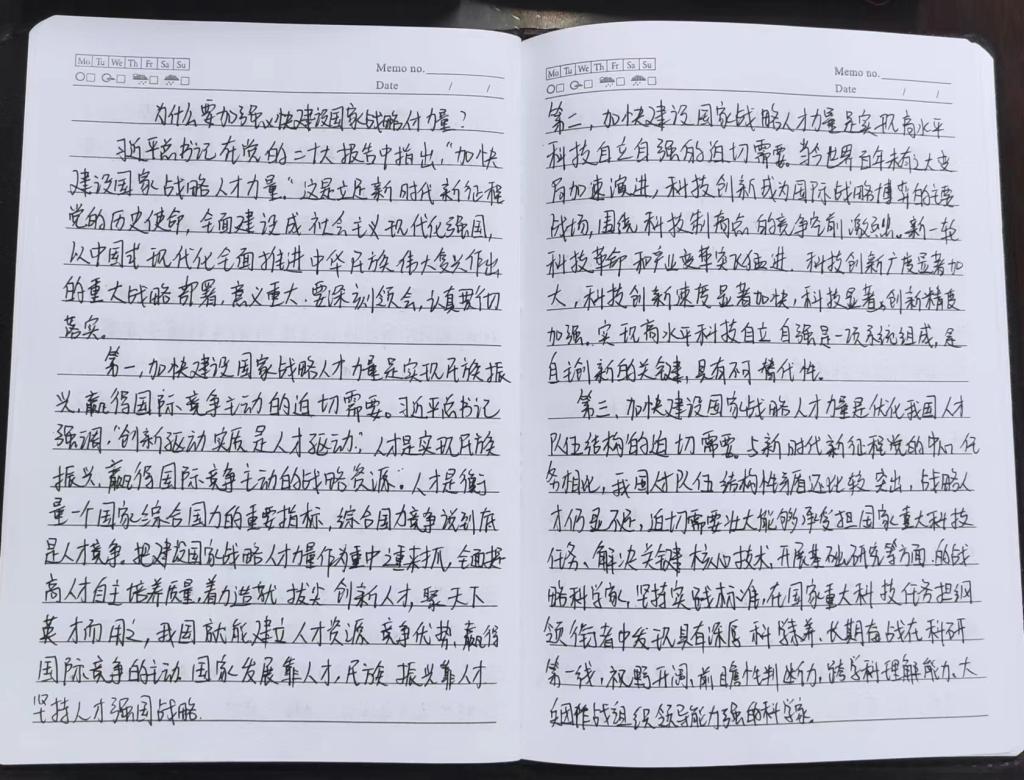 Mo Tu We Th Fr Sa Su
Memo no.
Date / /
为什么要加强加快建设国家战略人才力量？
习近平总书记在党的二十大报告中指出，“加快
建设国家战略人才力量。”这是立足新时代新征程
党的历史使命，全面建设成社会主义现代化强国，
以中国式现代化全面推进中华民族伟大复兴作出
的重大战略部署，意义重大，要深刻领会，认真贯彻
落实。
第一，加快建设国家战略人才力量是实现民族振
兴，赢得国际竞争主动的迫切需要。习近平总书记
强调，“创新驱动实质是人才驱动”，人才是实现民族
振兴，赢得国际竞争主动的战略资源。人才是衡
量一个国家综合国力的重要指标，综合国力竞争说到底
是人才竞争。把建设国家战略人才力量作为重中之重来抓，全面提
高人才自主培养质量，着力造就拔尖创新人才，聚天下
英才而用之，我国就能建立人才资源竞争优势，赢得
国际竞争的主动。国家发展靠人才，民族振兴靠人才
坚持人才强国战略.
Mo Tu We Th Fr Sa Su
Memo no.
Date / /
第二，加快建设国家战略人才力量是实现高水平
科技自立自强的迫切需要。当今世界百年未有之大变
局加速演进，科技创新成为国际战略博弈的主要
战场，围绕科技制高点的竞争空前激烈。新一轮
科技革命和产业变革突飞猛进，科技创新广度显著加
大，科技创新速度显著加快，科技显著创新精度
加强。实现高水平科技自立自强是一项系统组成，是
自主创新的关键，具有不可替代性。
第三，加快建设国家战略人才力量是优化我国人才
队伍结构的迫切需要。与新时代新征程党的中心任
务相比，我国人才队伍结构性矛盾还比较突出，战略人
才仍显不足，迫切需要壮大能够承担国家重大科技
任务、解决关键核心技术，开展基础研究等方面的战
略科学家，坚持实践标准，在国家重大科技任务担纲
领衔者中发现具有深厚科学素养、长期奋战在科研
第一线，视野开阔，前瞻性判断力、跨学科理解能力、大
兵团作战组织领导能力强的科学家。